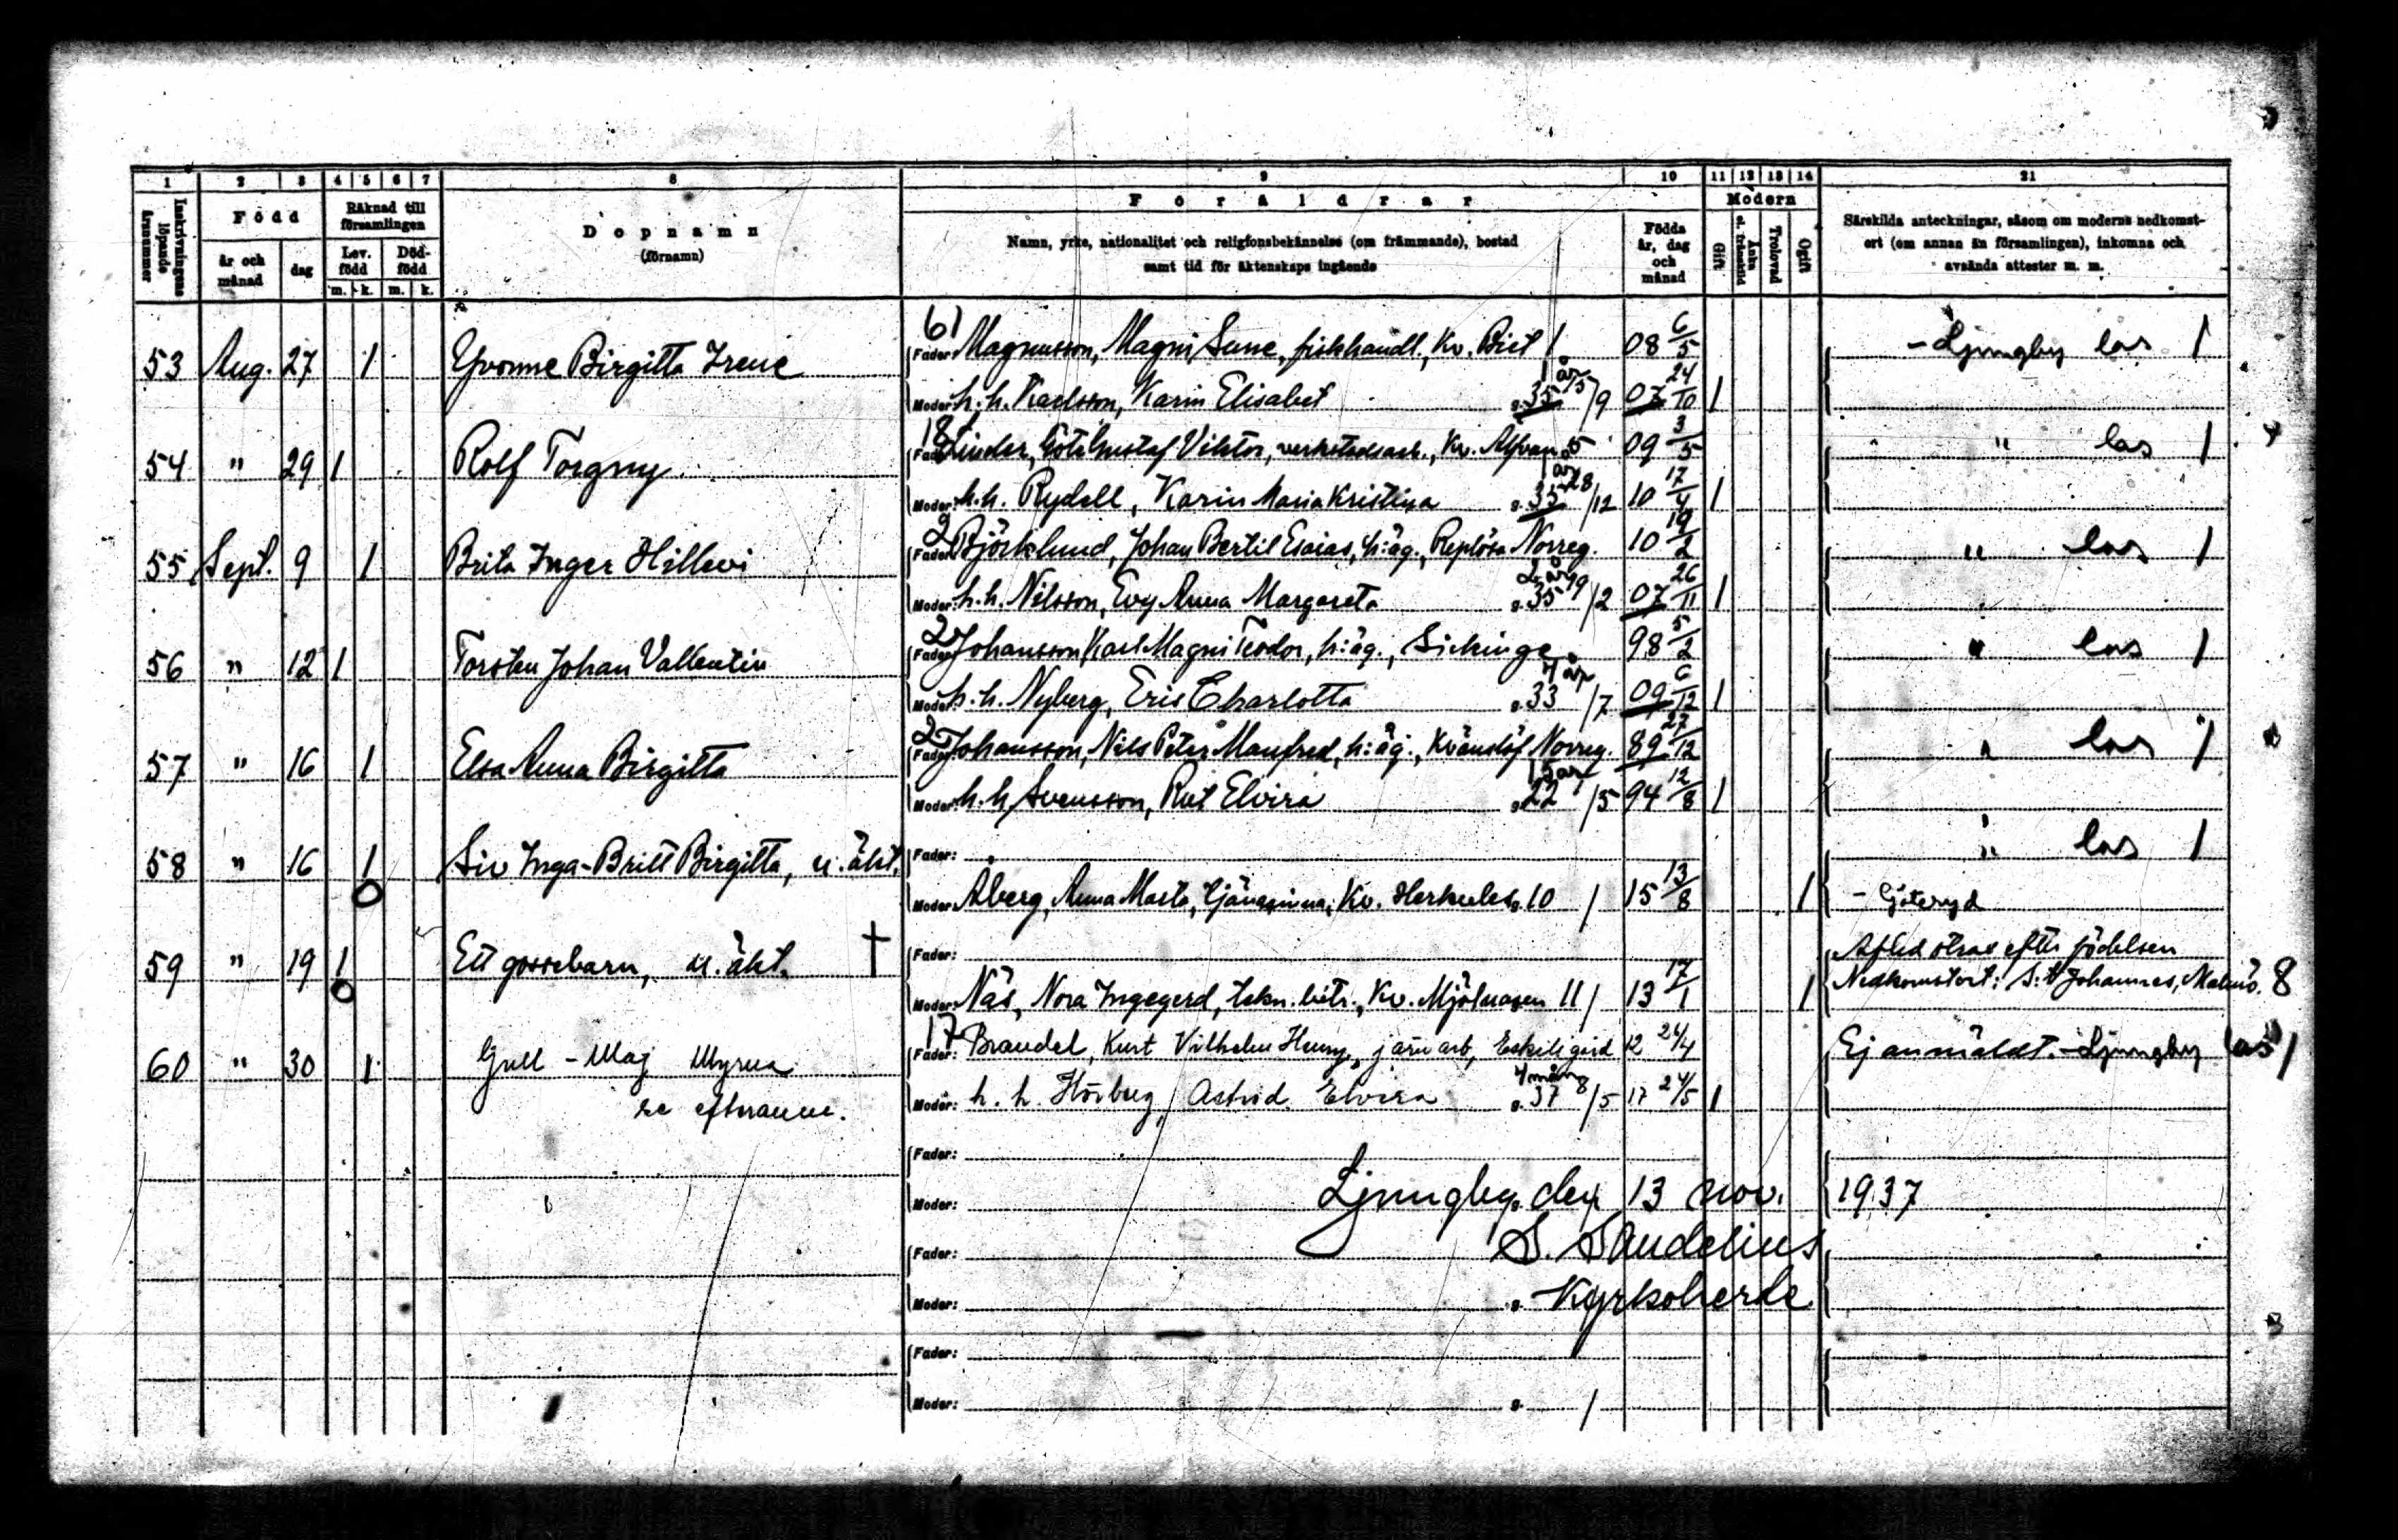 1 2 3 4 5 6 7 8 9 10 11 12 13 14 21
Inskrivningens löpande årsnummer
Född
år och månad
dag
Räknad till församlingen
Lev. född
Död-född
m. k. m. k.
Dopnamn
(förnamn)
Föräldrar
Namn, yrke, nationalitet och religionsbekännelse (om främmande), bostad
samt tid för äktenskaps ingående
Födda år, dag och månad
Modern
Gift
Änka l. frånskild
Trolovad
Ogift
Särskilda anteckningar, såsom om moderns nedkomst-
ort (om annan än församlingen), inkomna och
avsända attester m. m.
61
53 Aug. 27 1 Yvonne Birgitta Irene Fader: Magnusson, Magni Sune, fiskhandl., Kv. Biet 1 08 6/5 - Ljungby las 1
1 år
Moder: h. h. Karlsson, Karin Elisabet g. 35 15/9 07 24/10 1
18
54 " 29 1 Rolf Torgny Fader: Linder, Göte Gustaf Viktor, verkstadsarb., Kv. 5 09 3/5 " las 1
1 år
Moder: h. h. Rydell, Karin Maria Kristina g. 35 28/12 10 17/4 1
2
55 Sept. 9 1 Brita Inger Hillevi Fader: Björklund, Johan Bertil Esaias, h:äg., Replösa Norreg. 10 19/2 " las 1
2 år
Moder: h. h. Nilsson, Evy Anna Margareta g. 35 19/2 07 26/11 1
2
56 " 12 1 Torsten Johan Vallentin Fader: Johansson, Karl Magni Teodor, h:äg., Sickinge 98 5/2 " las 1
4 år
Moder: h. h. Nyberg, Eris Charlotta g. 33 /7 09 6/12 1
2
57 " 16 1 Elsa Anna Birgitta Fader: Johansson, Nils Peter Manfred, h:äg., Kvänslöf Norreg. 89 27/12 " las 1
15 år
Moder: h. h. Svensson, Rut Elvira g. 22 /5 94 12/8 1
58 " 16 1 Siv Inga-Britt Birgitta, u. äkt. Fader: " las 1
0 Moder: Åberg, Anna Marta, tjänarinna, Kv. Herkules g. 10 / 15 13/8 1 - Göteryd
59 " 19 1 Ett gossebarn, u. äkt. † Fader: Afled strax efter födelsen
0 Moder: Näs, Nora Ingegerd, tekn. bitr., Kv. Mjölnaren 11 / 13 17/1 1 Nedkomstort: S:t Johannes, Malmö. 8
17
60 " 30 1 Gull-Maj Myrna Fader: Brandel, Kurt Vilhelm Henry, järnarb, Eskilsgård 12 24/4 Ej anmäldt. - Ljungby las 1
4 mån
se efternamn. Moder: h. h. Hörberg, Astrid Elvira g. 37 8/5 17 24/5 1
Fader:
Moder: Ljungby den 13 nov. 1937
Fader: S. Sandelius
Moder: g. Kyrkoherde
Fader:
Moder: g. /